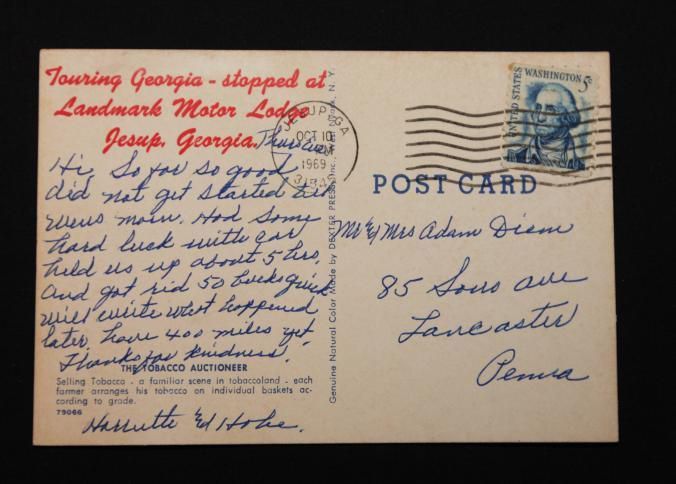 Touring Georgia - stopped at
Landmark Motor Lodge
Jesup, Georgia.
Thurs
Hi, So far so good
did not get started till
Weds morn. Had some
hard luck with car
held us up about 5 hrs,
and got rid 50 bucks quick
will write what happened
later, have 400 miles yet
Thanks for kindness!
THE TOBACCO AUCTIONEER
Selling Tobacco - a familiar scene in tobaccoland - each
farmer arranges his tobacco on individual baskets ac-
cording to grade.
79066
Harriette Ed Hoke.
Genuine Natural Color Made by DEXTER PRESS, Inc., N. Y.
JESUP, GA
OCT 10
PM
1969
UNITED STATES
WASHINGTON 5c
POST CARD
Mr & Mrs Adam Diem
85 Ave
Lancaster
Penna